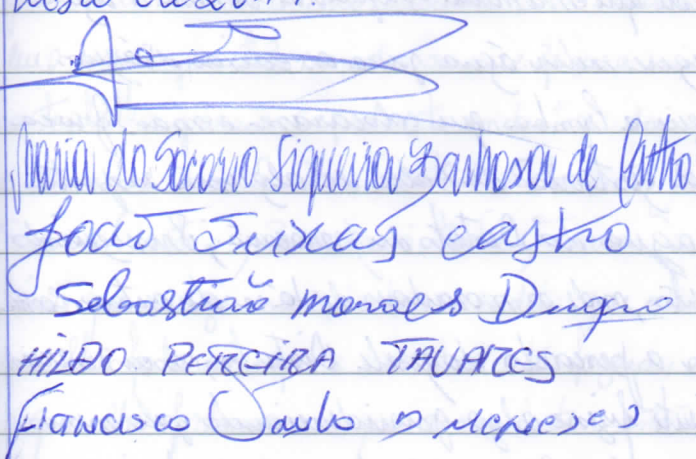 Maria do Socorro Siqueira Barbosa de Castro
João Seixas Castro
Sebastião Moraes
HILDO PEREIRA TAVARES
Francisco Paulo D Meneses